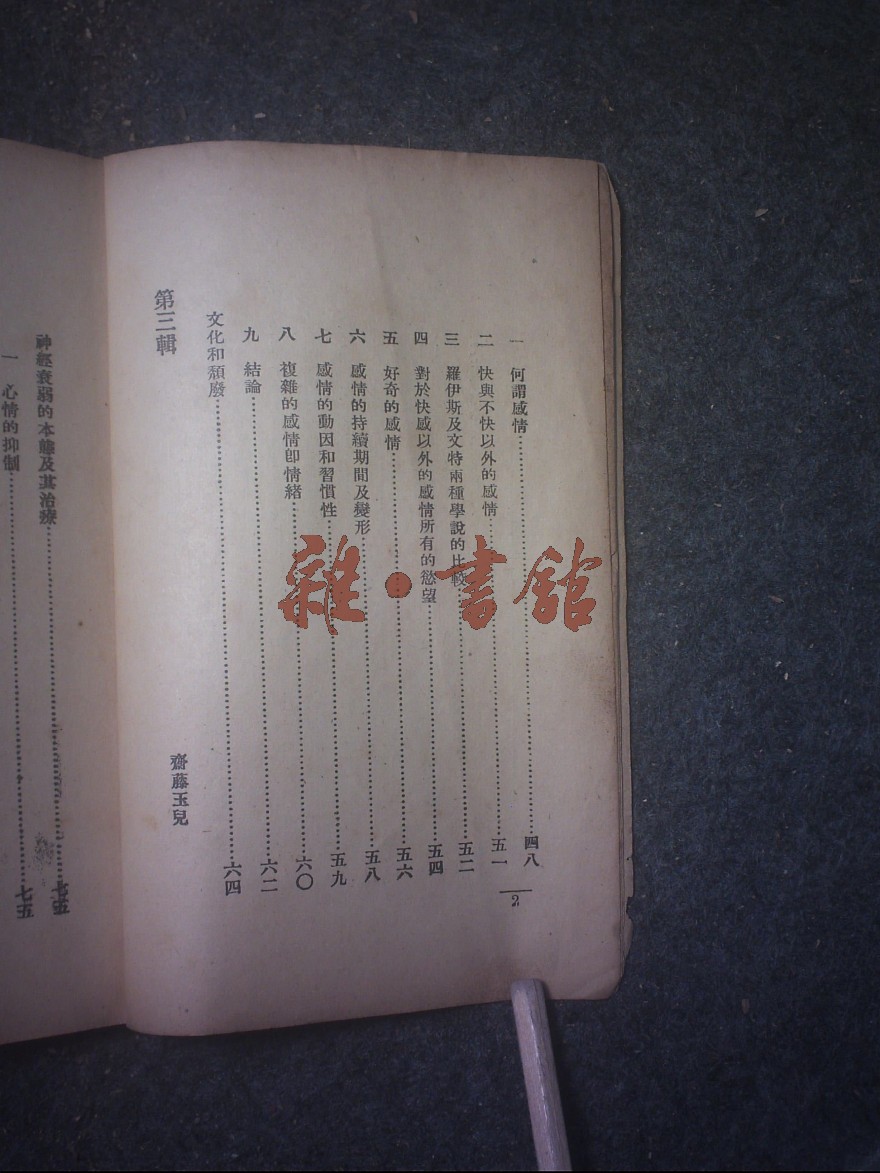 一 何謂感情……四八
二 快與不快以外的感情……五一
三 羅伊斯及文特兩種學說的比較……五二
四 對於快感以外的感情所有的慾望……五四
五 好奇的感情……五六
六 感情的持續期間及變形……五八
七 感情的動因和習慣性……五九
八 複雜的感情卽情緒……六〇
九 結論……六二
文化和頹廢……六四
第三輯 齋藤玉兒
2
神經衰弱的本態及其治療……七五
一 心情的抑制……七五
雜·書館